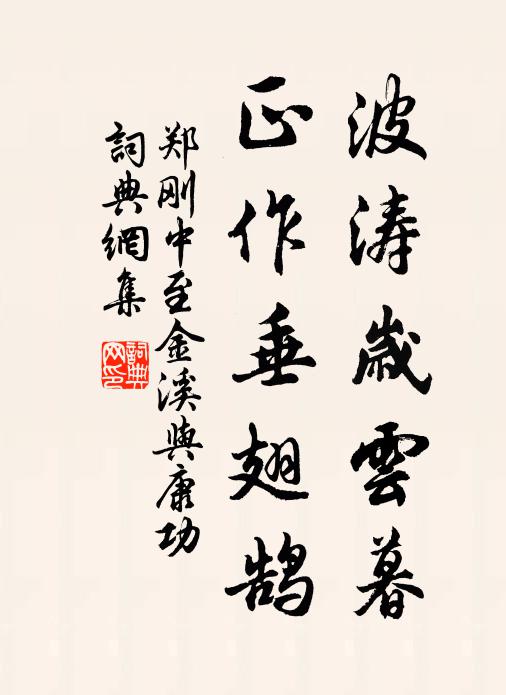 波涛岁雲暮
正作垂翅鹄
郑刚中至金溪與康功
詞典網集
詞典
网印